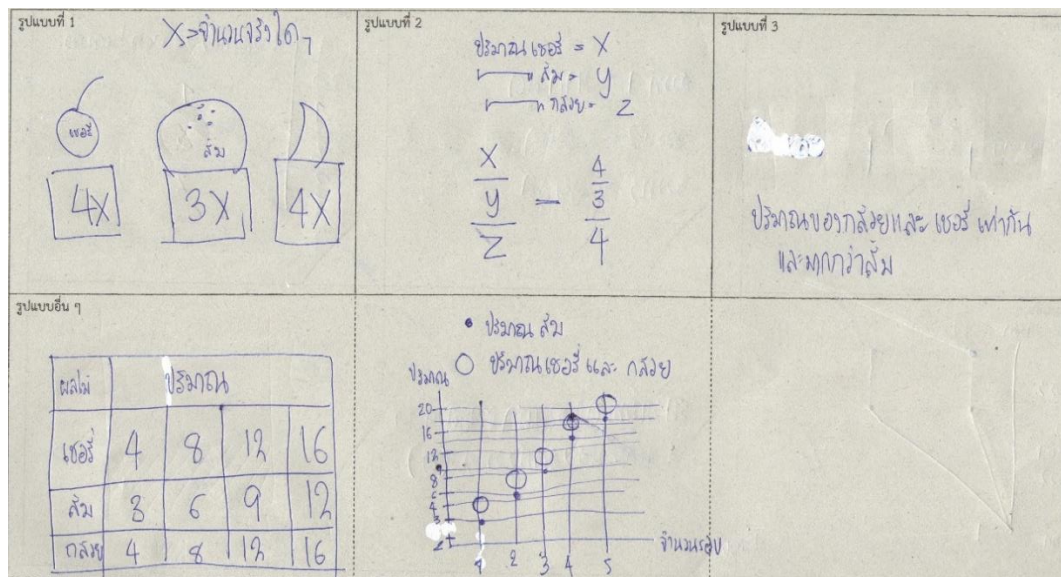 รูปแบบที่ 1
X=จำนวนจริงใดๆ
เชอรี่
ส้ม
4X
3X
4X
รูปแบบที่ 2
ปริมาณ เชอรี่ = X
" ส้ม = y
" กล้วย = Z
X
y
Z
=
4
3
4
รูปแบบที่ 3
ปริมาณของกล้วยและ เชอรี่ เท่ากัน
และมากกว่าส้ม
รูปแบบอื่น ๆ
ผลไม้ ปริมาณ
เชอรี่ 4 8 12 16
ส้ม 3 6 9 12
กล้วย 4 8 12 16
ปริมาณ ส้ม
ปริมาณเชอรี่ และ กล้วย
ปริมาณ
20
16
12
8
6
4
2
1 2 3 4 5
จำนวนรอบ